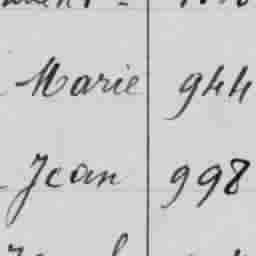 Marie 944
Jean 998